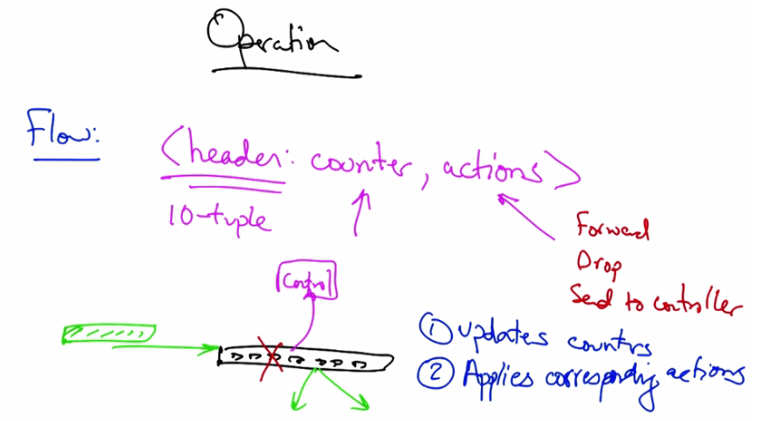 Operation
Flow:
<header: counter, actions>
10-tuple
Forward
Drop
Send to controller
Control
① updates counters
② Applies corresponding actions